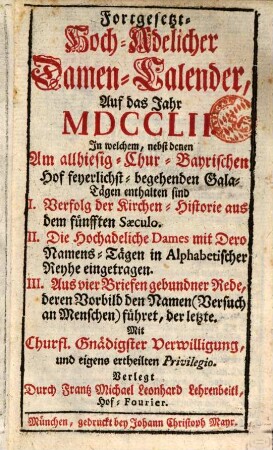 Fortgesetzt-
Hoch-Adelicher
Damen-Calender,
Auf das Jahr
MDCCLII
In welchem, nebst denen
Am allhiesig-Chur-Bayrischen
Hof feyerlichst-begehenden Gala-
Tägen enthalten sind
I. Verfolg der Kirchen-Historie aus
dem fünfften Sæculo.
II. Die Hochadeliche Dames mit Dero
Namens-Tägen in Alphabetischer
Reyhe eingetragen.
III. Aus vier Briefen gebundner Rede,
deren Vorbild den Namen (Versuch
an Menschen) führet, der letzte.
Mit
Churfl. Gnädigster Verwilligung,
und eigens ertheilten Privilegio.
Verlegt
Durch Frantz Michael Leonhard Lehrenbeitl,
Hof-Fourier.
München, gedruckt bey Johann Christoph Mayr.